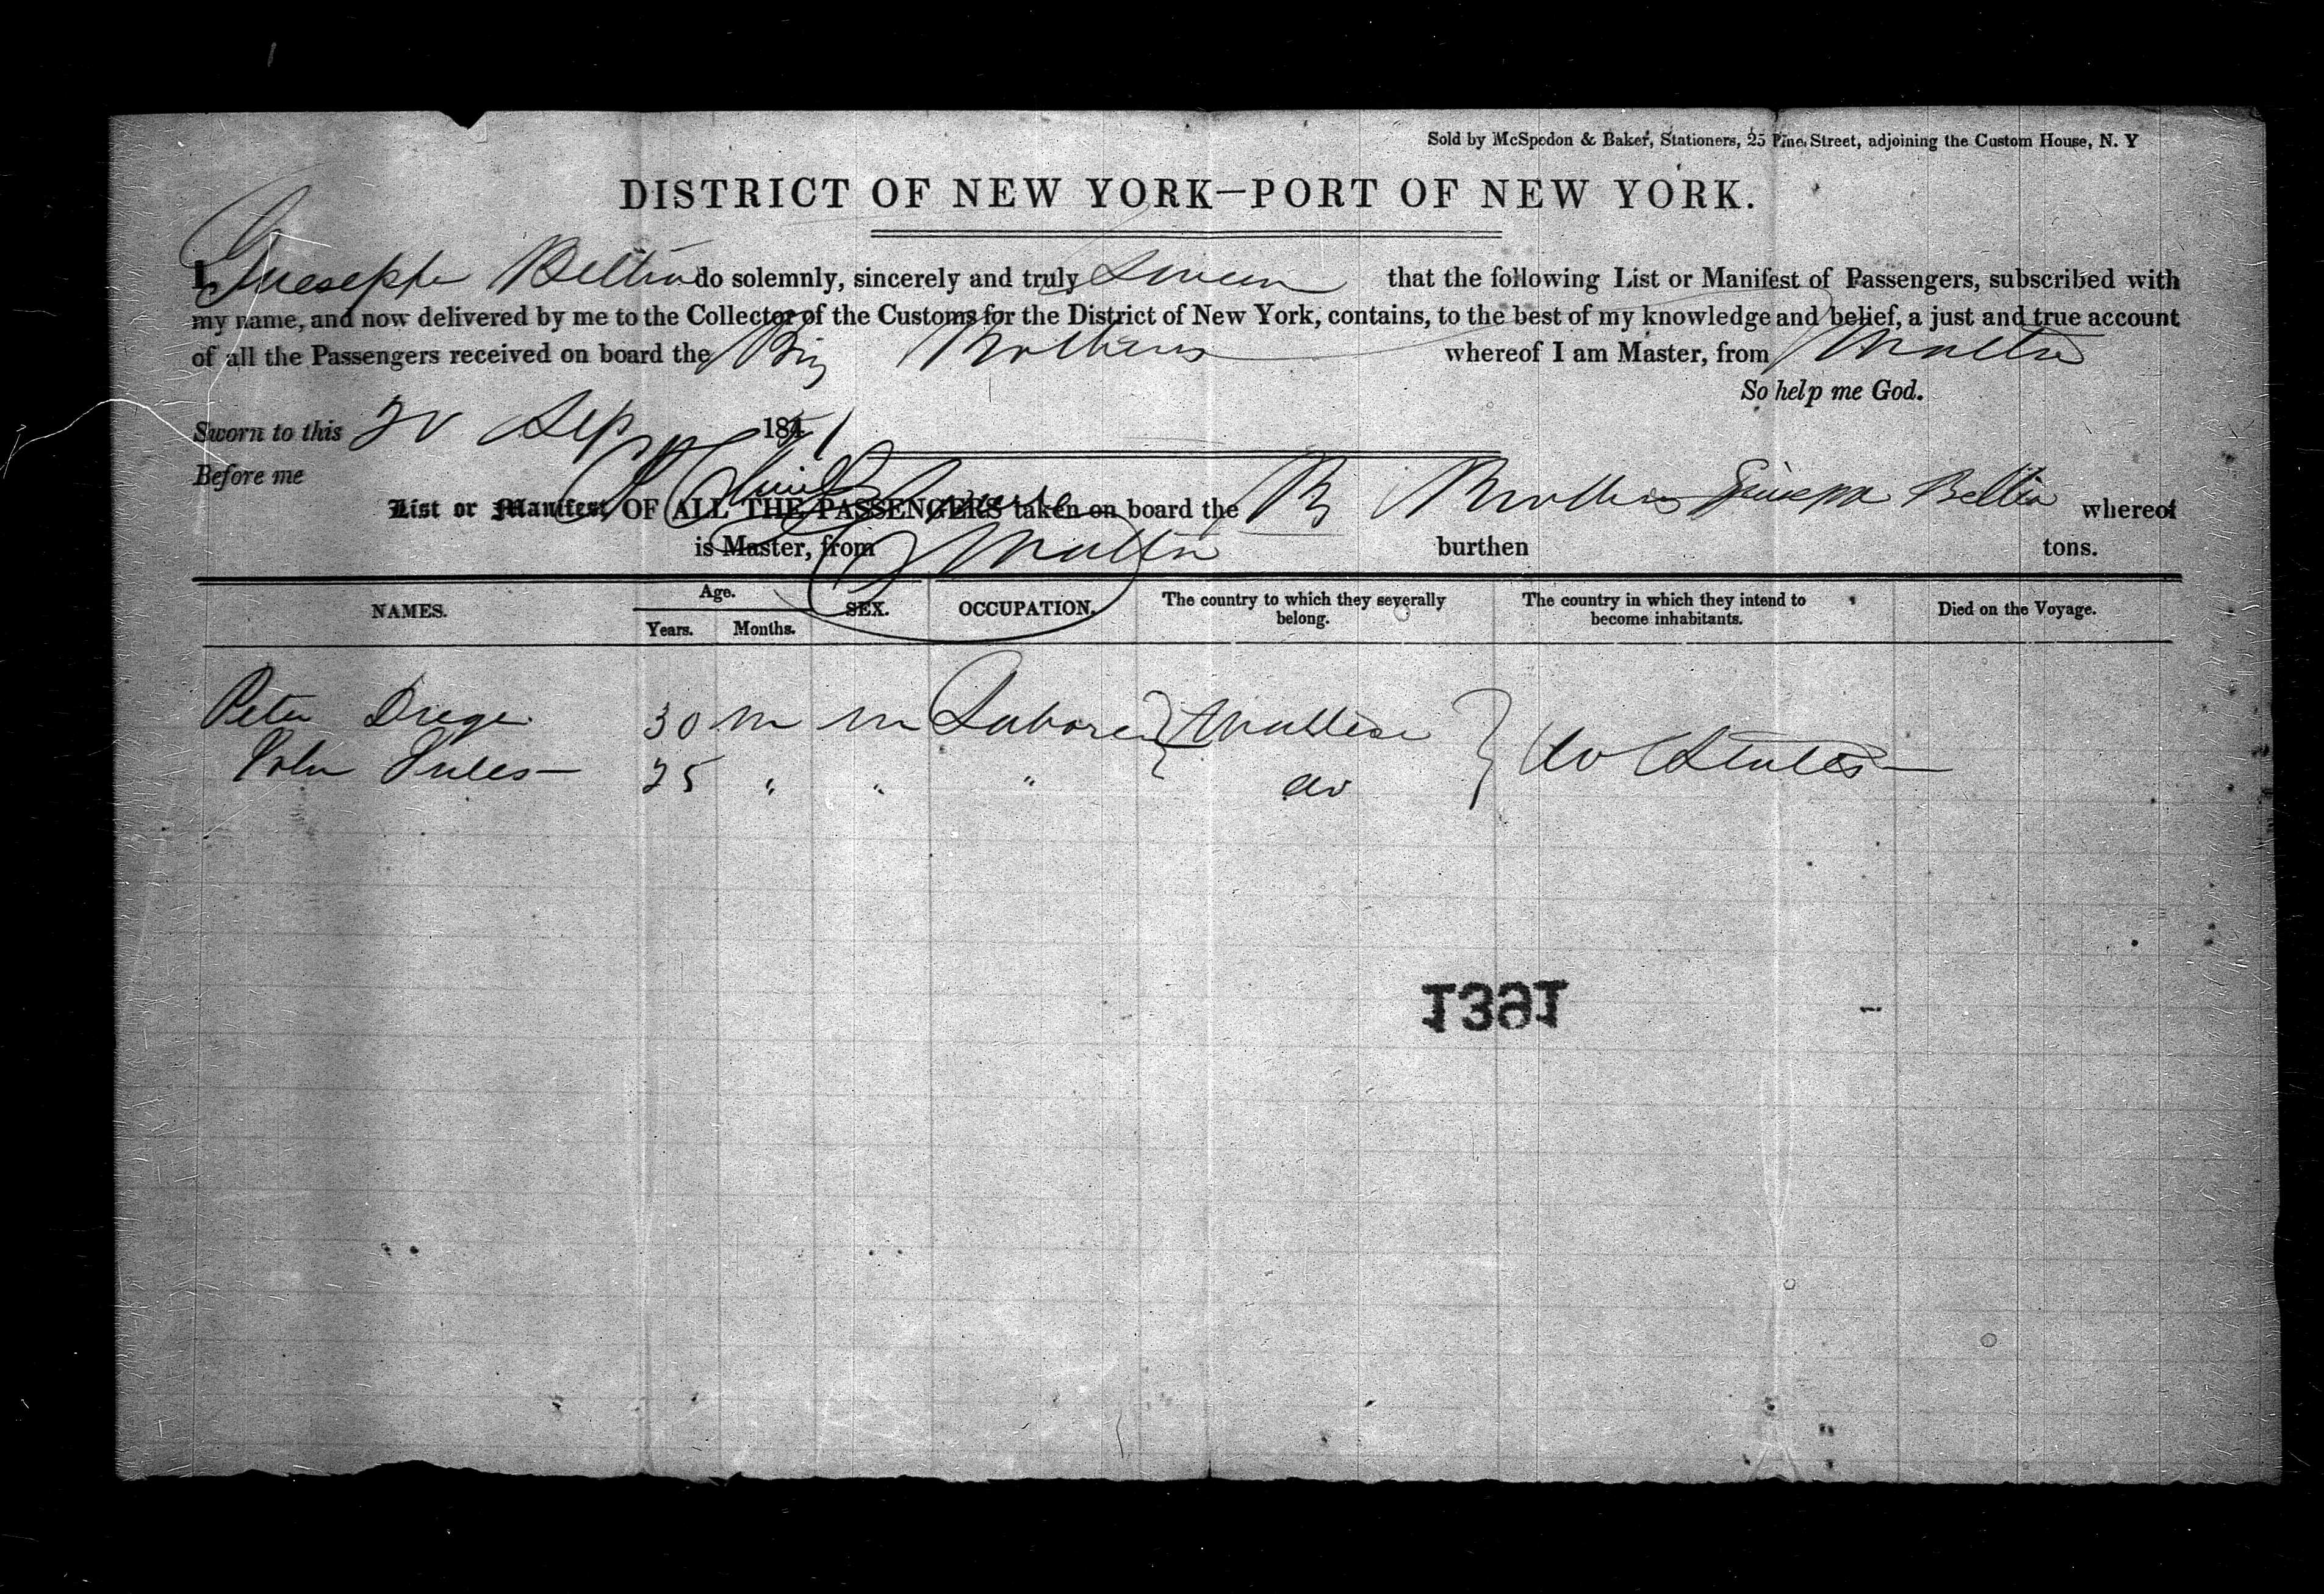 Sold by McSpedon & Baker, Stationers, 25 Pine Street, adjoining the Custom House, N. Y
DISTRICT OF NEW YORK—PORT OF NEW YORK.
I, Gueseppe Beltia do solemnly, sincerely and truly Swear that the following List or Manifest of Passengers, subscribed with
my name, and now delivered by me to the Collector of the Customs for the District of New York, contains, to the best of my knowledge and belief, a just and true account
of all the Passengers received on board the Brig Brothers whereof I am Master, from Malta
So help me God.
Sworn to this Sep 1851
Before me
List or Manifest OF ALL THE PASSENGERS taken on board the Brothers Giuseppe Beltia whereof
is Master, from Malta burthen tons.
NAMES. Age. Years. Months. SEX. OCCUPATION. The country to which they severally belong. The country in which they intend to become inhabitants. Died on the Voyage.
Peter Drege 30 m m Laborer Maltese U States
John 25 " " " do
1391